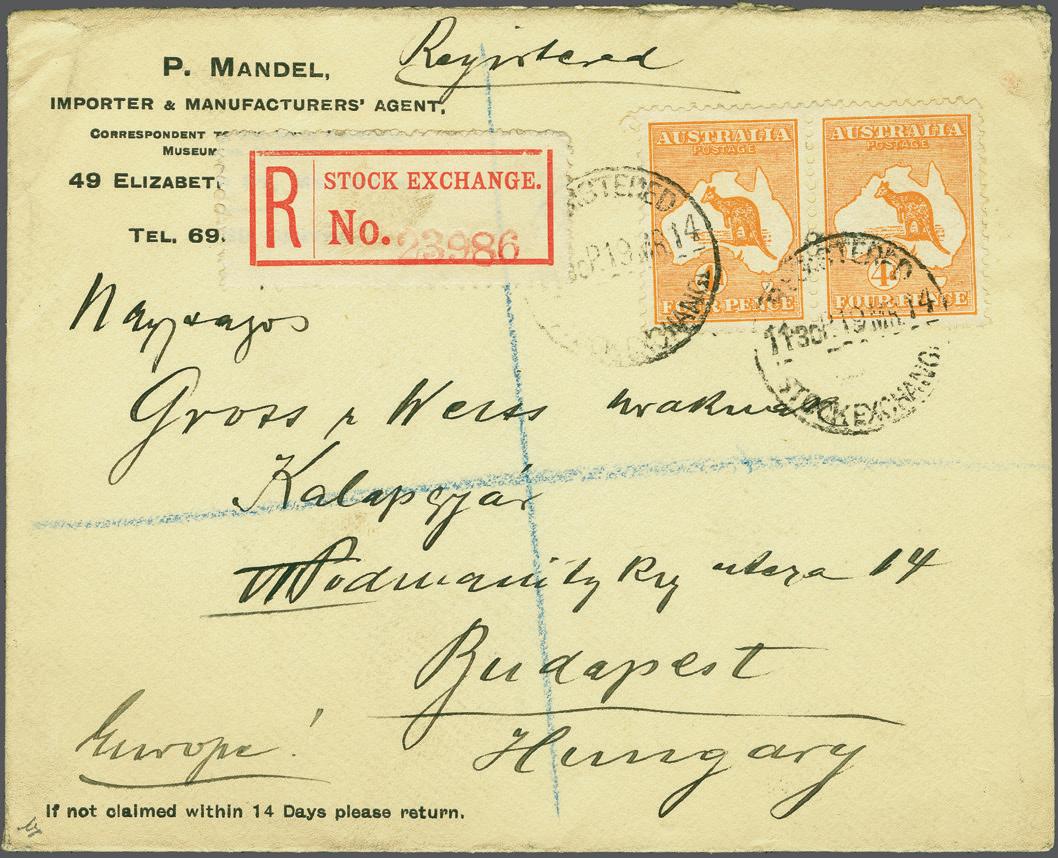 Registered
P. MANDEL,
IMPORTER & MANUFACTURERS' AGENT,
CORRESPONDENT
MUSEUM
49 ELIZABET
TEL. 69.
R STOCK EXCHANGE.
No. 23986
AUSTRALIA
POSTAGE
4
FOUR PENCE
AUSTRALIA
POSTAGE
4
FOUR PENCE
REGISTERED
19 MR 14
STOCK EXCHANGE
REGISTERED
1130P 19 MR 14
STOCK EXCHANGE
Gross Weiss
Kalapgyár
Podmaniczky utcza 14
Budapest
Hungary
Europe!
If not claimed within 14 Days please return.